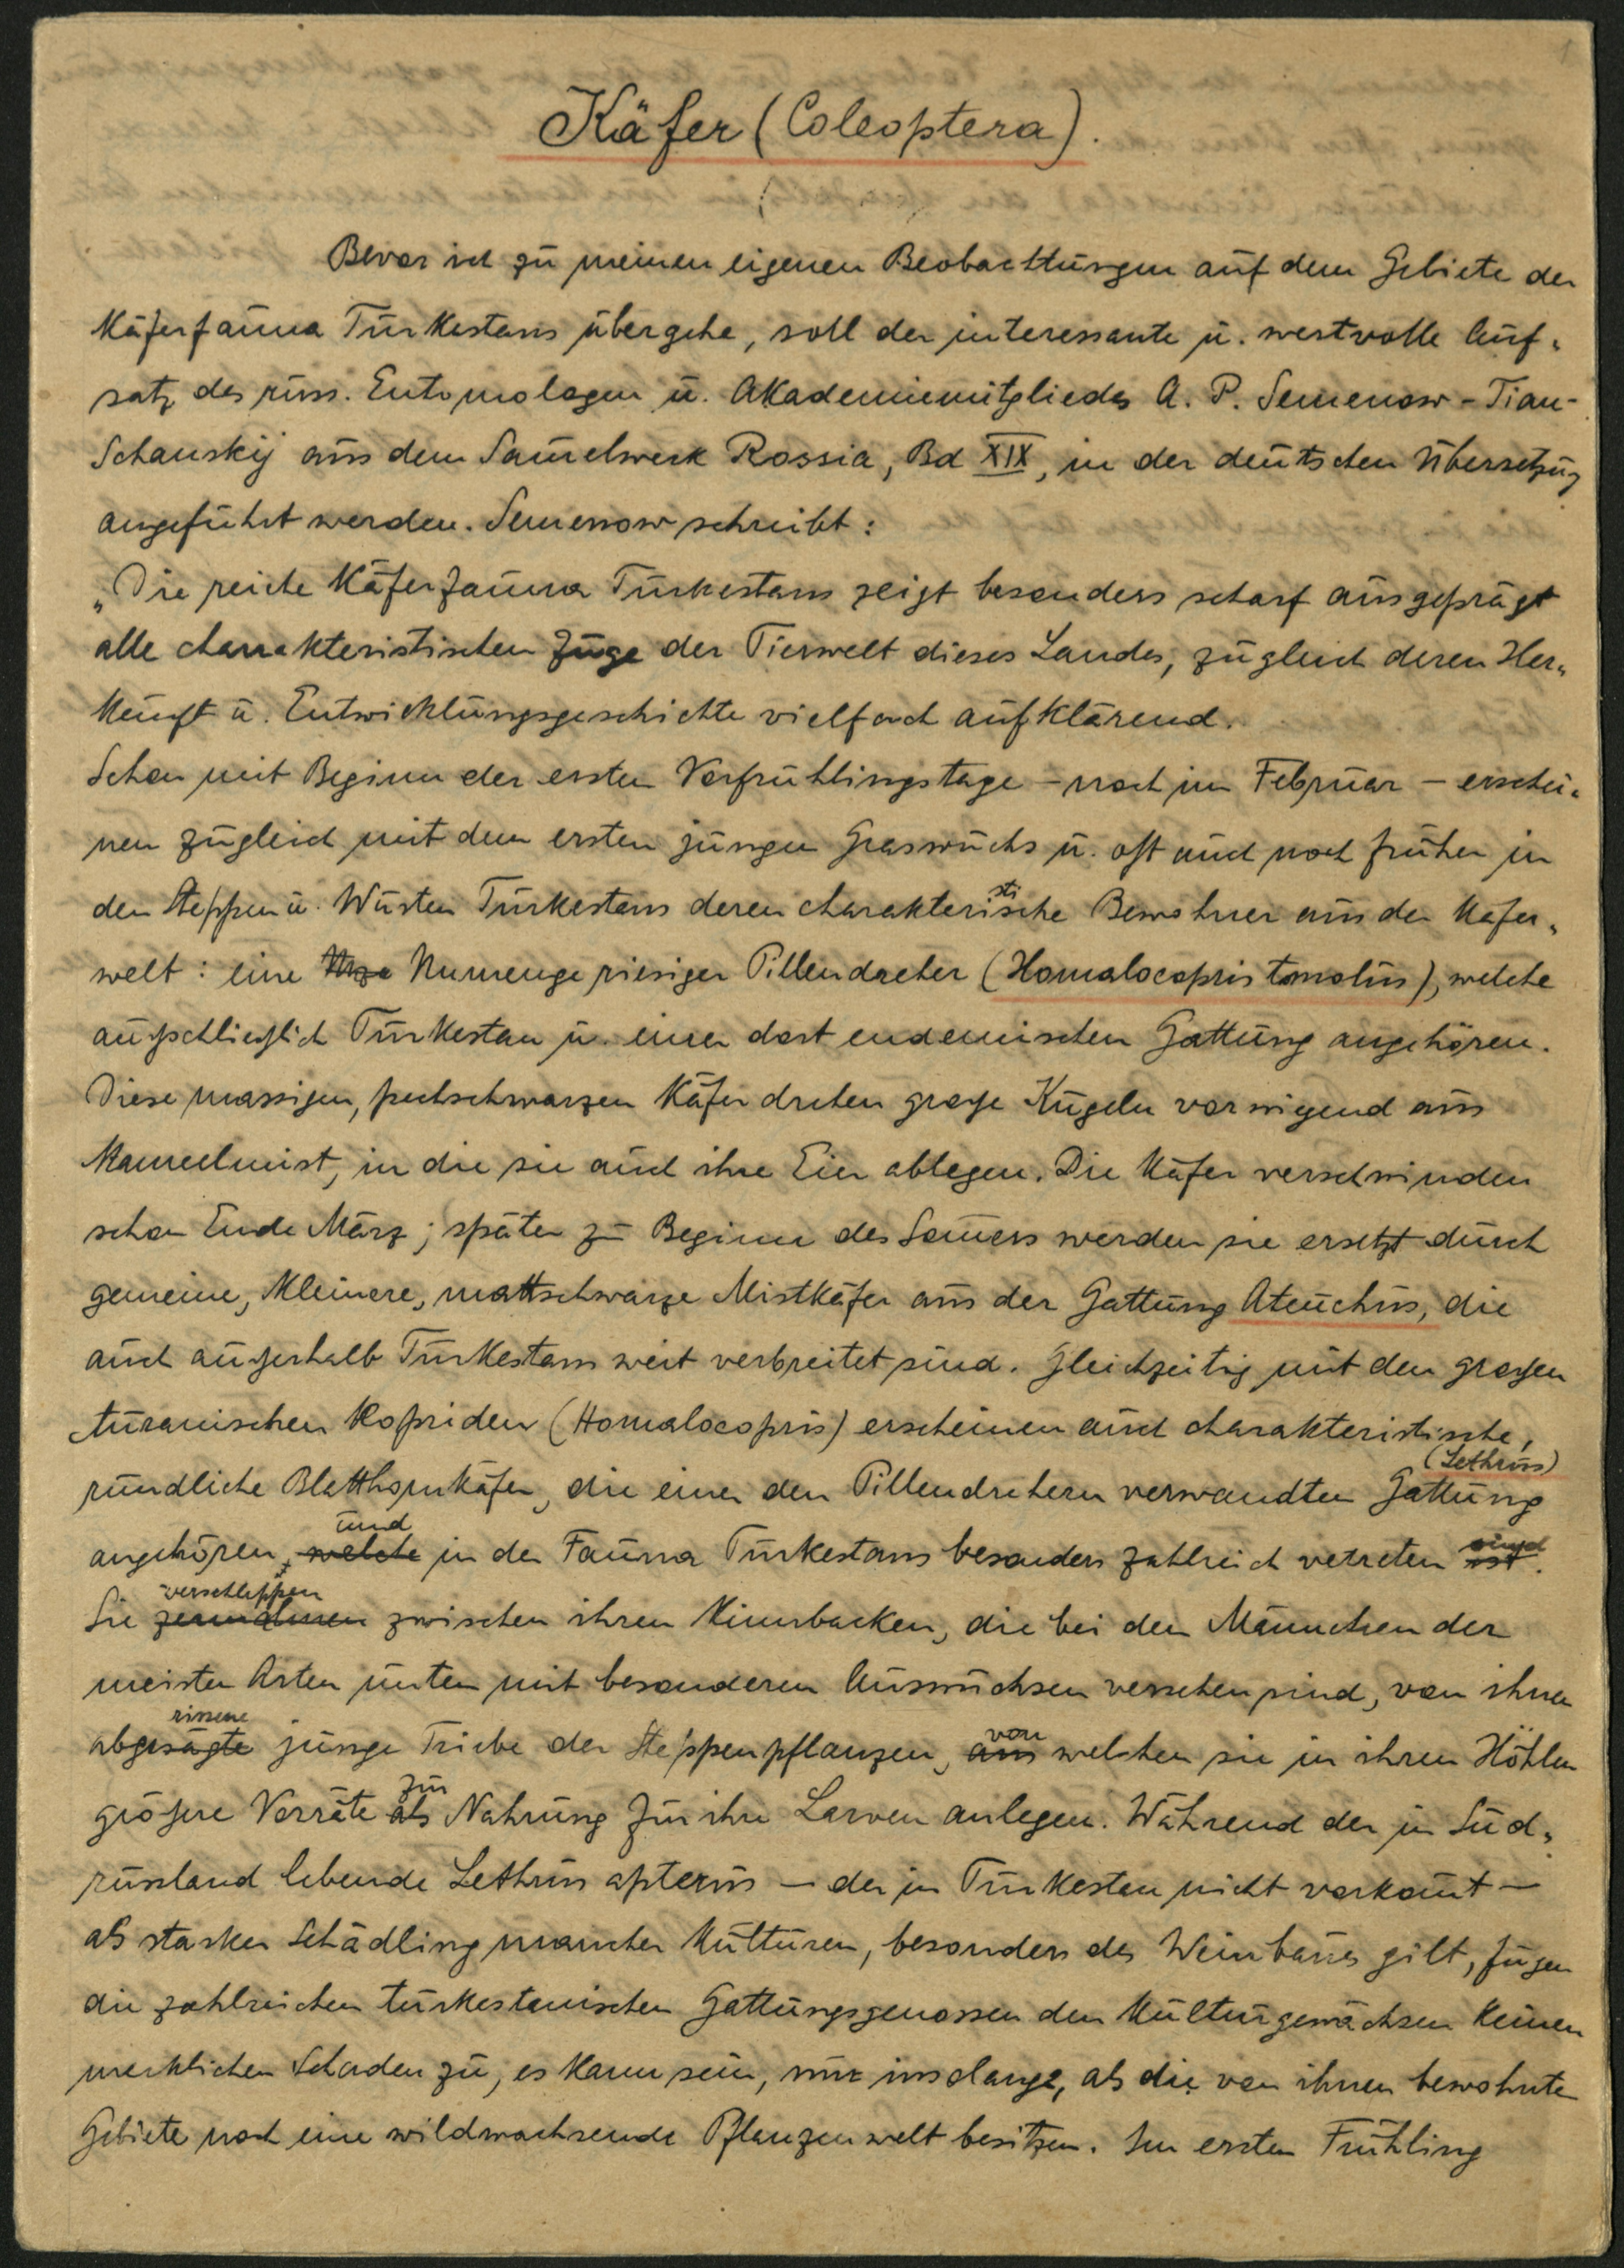 1
Käfer (Coleoptera).
Bevor ich zu meinen eigenen Beobachtungen auf dem Gebiete der
Käferfauna Turkestans übergehe, soll der interessante u. wertvolle Auf-
satz des russ. Entomologen u. Akademiemitgliedes A. P. Semenow-Tian-
Schanskij aus dem Sam̅elwerk Rossia, Bd XIX, in der deutschen Übersetzung
angeführt werden. Semenow schreibt:
„Die reiche Käferfauna Turkestans zeigt besonders scharf ausgeprägt
alle charakteristischen Züge der Tierwelt dieses Landes, zugleich deren Her-
kunft u. Entwicklungsgeschichte vielfach aufklärend.
Schon mit Beginn der ersten Vorfrühlingstage - noch im Februar - erschei-
nen zugleich mit dem ersten jungen Graswuchs u. oft auch noch früher in
den Steppen u. Wüsten Turkestans deren charakteristische Bewohner aus der Käfer-
welt: eine Unmenge riesiger Pillendreher (Homalocopris tmolus), welche
ausschließlich Turkestan u. einer dort endemischen Gattung angehören.
Diese massigen, pechschwarzen Käfer drehen große Kugeln vorwiegend aus
Kameelmist, in die sie auch ihre Eier ablegen. Die Käfer verschwinden
schon Ende März; später zu Beginn des Som̅ers werden sie ersetzt durch
gemeine, kleinere, mattschwarze Mistkäfer aus der Gattung Ateuchus, die
auch außerhalb Turkestans weit verbreitet sind. Gleichzeitig mit den großen
turanischen Kopriden (Homalocopris) erscheinen auch charakteristische,
rundliche Blatthornkäfer, die einer den Pillendrehern verwandten Gattung (Lethrus)
angehören, welche und in der Fauna Turkestans besonders zahlreich vetreten ist sind.
Sie verschleppen zwischen ihren Kinnbacken, die bei den Männchen der
meisten Arten unten mit besonderen Auswüchsen versehen sind, von ihnen
abgesägte rissene junge Triebe der Steppenpflanzen, aus von welchen sie in ihren Höhlen
größere Vorräte als zur Nahrung für ihre Larven anlegen. Während der in Süd-
russland lebende Lethrus apterus - der in Turkestan nicht vorkom̅t -
als starker Schädling mancher Kulturen, besonders des Weinbaues gilt, fügen
die zahlreichen turkestanischen Gattungsgenossen den Kulturgewächsen keinen
merklichen Schaden zu, es kann sein, nur insolange, als die von ihnen bewohnte
Gebiete noch eine wildwachsende Pflanzenwelt besitzen. Im ersten Frühling